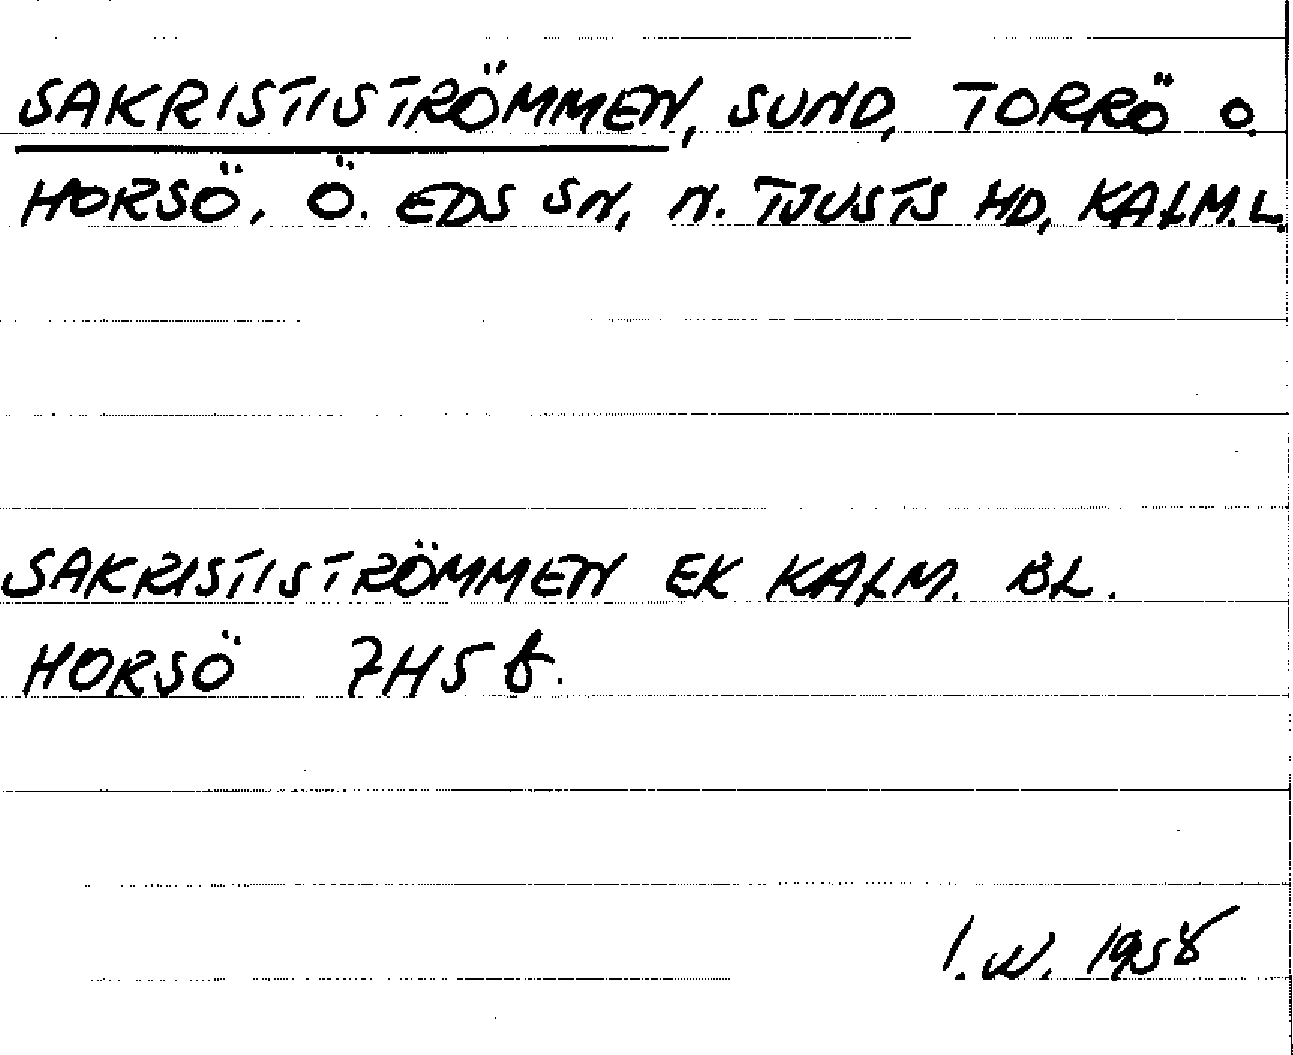 SAKRISTISTRÖMMEN, SUND, TORRÖ O.
HORSÖ, Ö. EDS SN, N. TJUSTS HD, KALM.L.
SAKRISTISTRÖMMEN EK KALM. BL.
HORSÖ 7H5f.
I.W. 1958